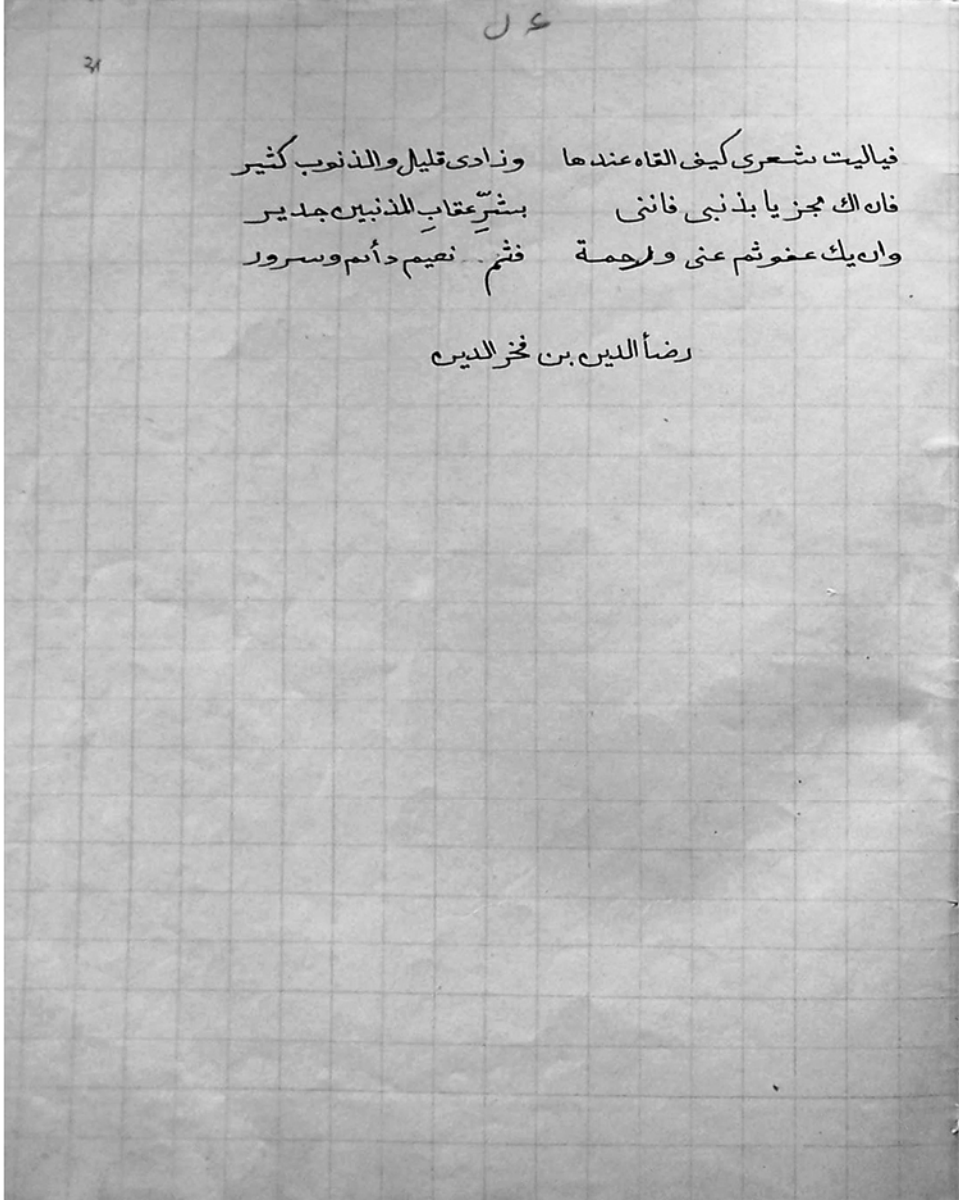 ع ل
فياليت شعرى كيف القاه عندها وزادى قليل والذنوب كثير
فان اك مجزيا بذنبى فاننى بشرِّ عقابِ المذنبين جدير
وان يك عفو ثم عنى ورحمة فثم نعيم دأىم وسرور
رضأالدين بن فخر الدين